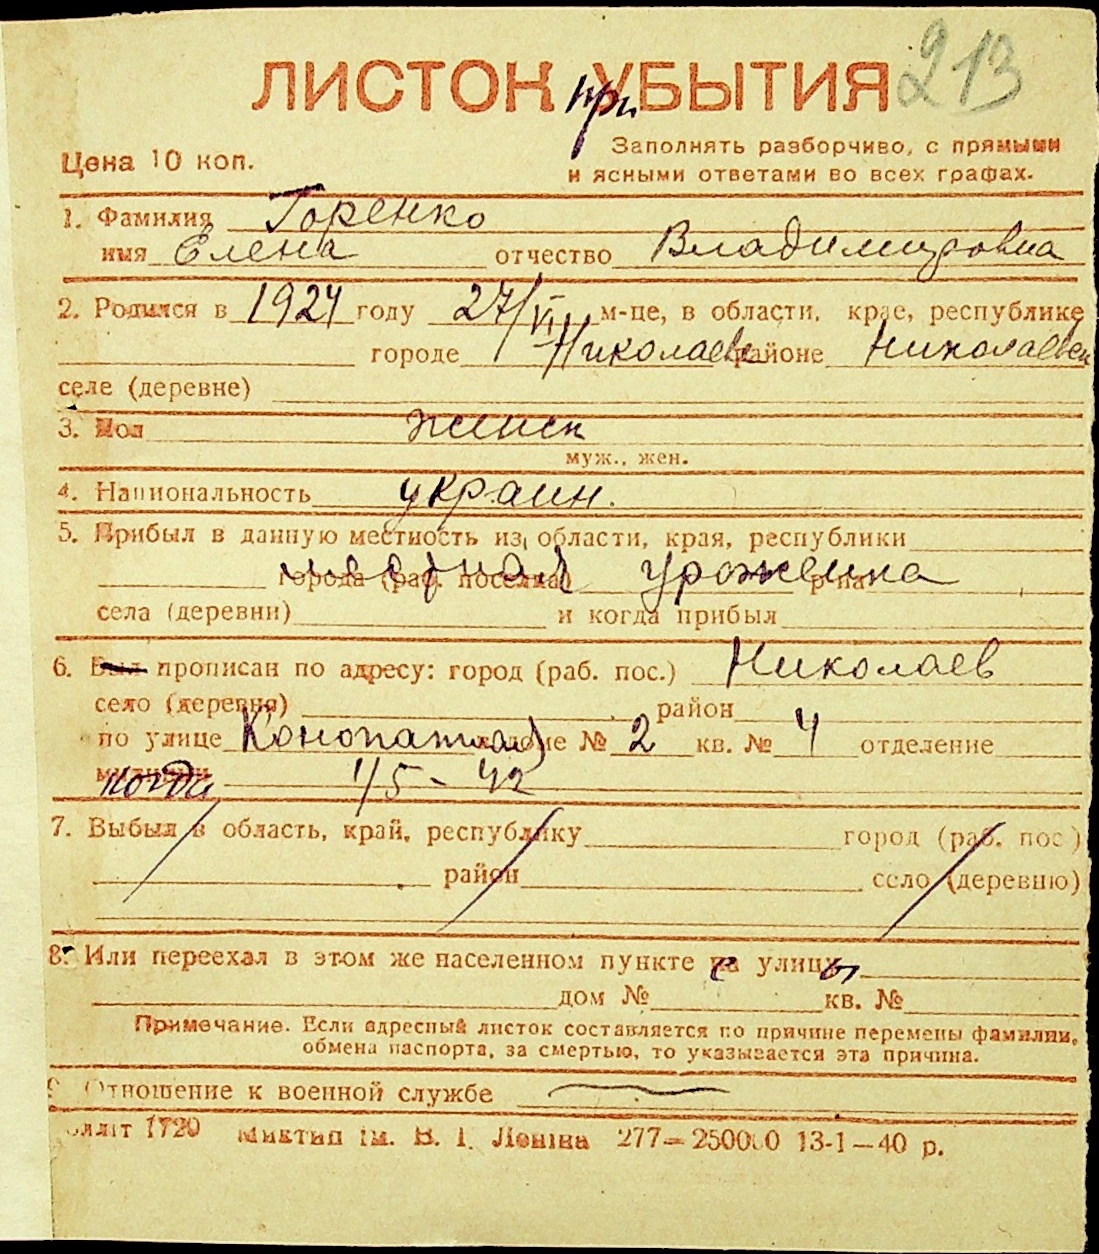 213
ЛИСТОК при УБЫТИЯ
Цена 10 коп.
Заполнять разборчиво, с прямыми
и ясными ответами во всех графах.
1. Фамилия Горенко
имя Елена отчество Владимировна
2. Родился в 1924 году 27/VI м-це, в области, крае, республике
городе Николаев районе Николаевск
селе (деревне)
3. Пол женск
муж., жен.
4. Национальность украин.
5. Прибыл в данную местность из области, края, республики
города (раб. поселка) местная уроженка р-на
села (деревни) и когда прибыл
6. Был прописан по адресу: город (раб. пос.) Николаев
село (деревня) район
по улице Конопатная доме № 2 кв. № 4 отделение
милиции когда 1/5-42
7. Выбыл в область, край, республику город (раб. пос.)
район село (деревню)
8. Или переехал в этом же населенном пункте с улицы
дом № кв. №
Примечание. Если адресный листок составляется по причине перемены фамилии,
обмена паспорта, за смертью, то указывается эта причина.
9. Отношение к военной службе
1720 Миктип ім. В. І. Леніна 277—250000 13-1—40 р.